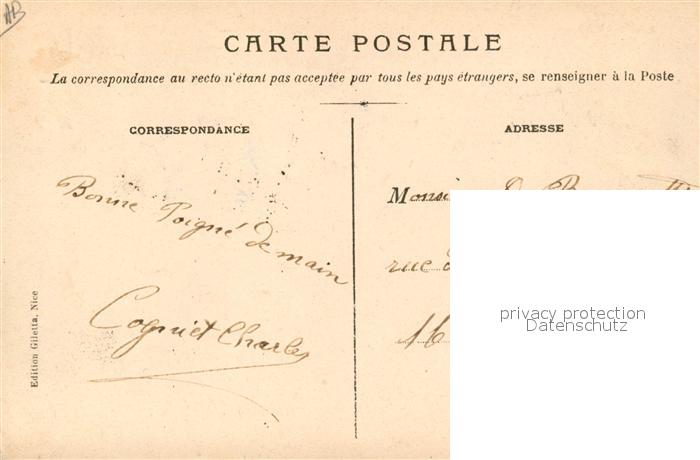 AB
CARTE POSTALE
La correspondance au recto n'étant pas acceptée par tous les pays étrangers, se renseigner à la Poste
CORRESPONDANCE
Bonne Poigné de main
Cogniet Charles
Edition Giletta, Nice
ADRESSE
rue
16
privacy protection
Datenschutz